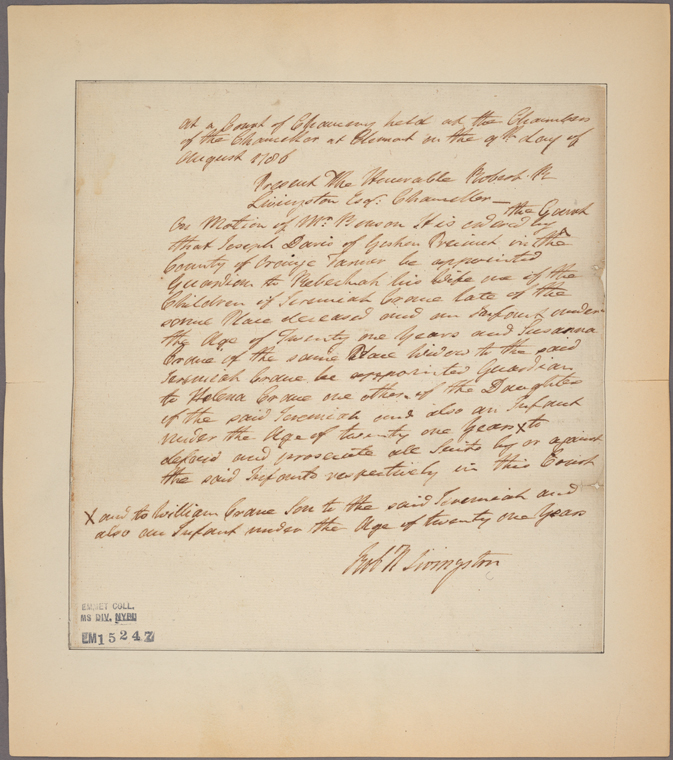 at a Court of Chancery held at the Chambers
of the Chancellor at Clermont on the 9th day of
August 1786
Present The Honorable Robert R
Livingston Esqr. Chancellor—
On Motion of Mr. Benson It is ordered by ^ the Court
that Joseph Davis of Goshen Precinct in the
County of Orange Farmer be appointed
Guardian to Rebeckah his Wife one of the
Children of Jeremiah Crane late of the
same Place deceased and an Infant under
the Age of Twenty one Years and Susanna
Crane of the same Place Widow to the said
Jeremiah Crane be appointed Guardian
to Helena Crane one other of the Daughters
of the said Jeremiah and also an Infant
under the Age of twenty one Years X to
defend and prosecute all Suits by or against
the said Infants respectively in this Court
X and to William Crane Son to the said Jeremiah and
also an Infant under the Age of twenty one Years
Rob R Livingston
EMMET COLL.
MS DIV. NYPL
EM15247